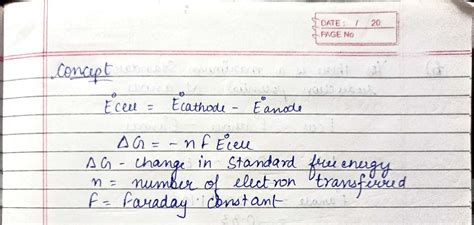 DATE: / 20
PAGE No
Concept
E°cell = E°cathode - E°anode
ΔG = - n F E°cell
ΔG - change in Standard free energy
n = number of electron transferred
F = Faraday constant